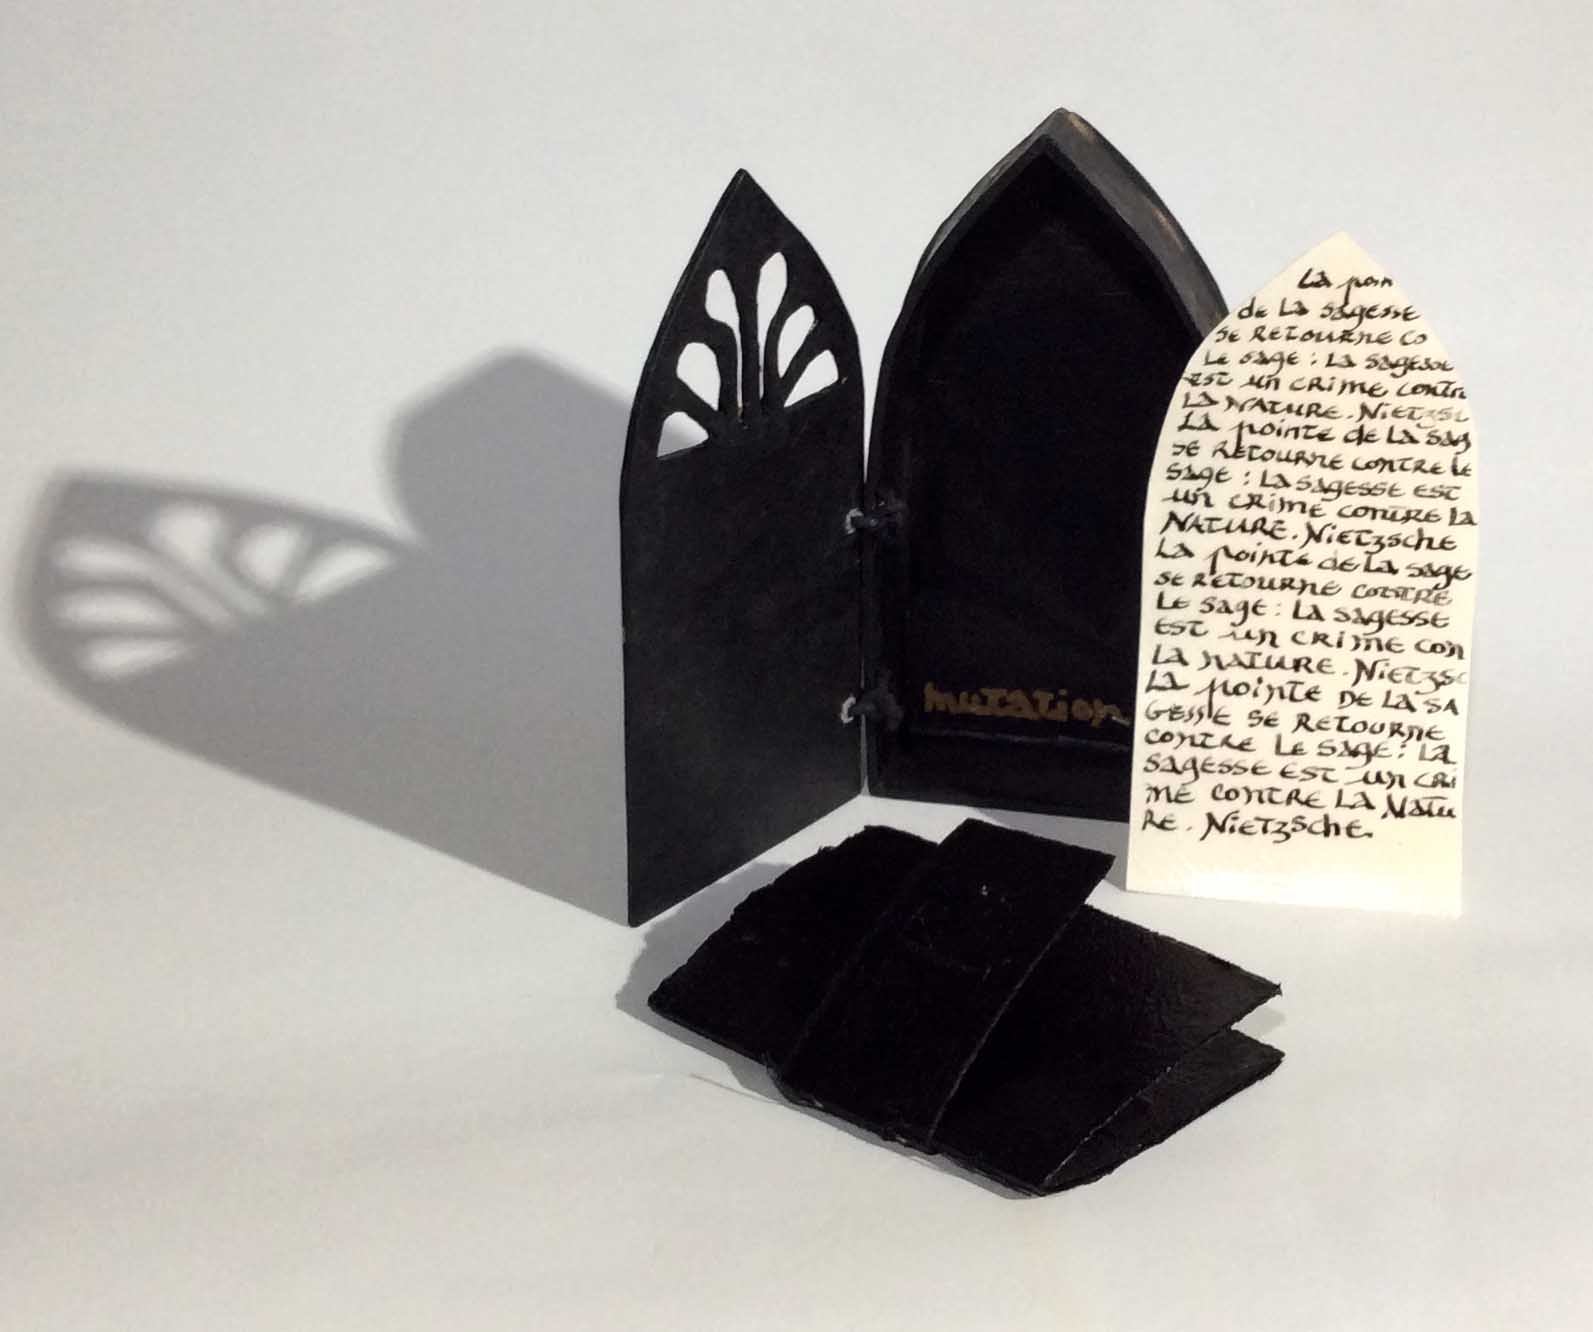 mutation
La poin
de La sagesse
se RETOURNE co
Le sage : La sagesse
EST un CRIME contr
LA NATURE. NIETZSC
La pointe de La sag
SE RETOURNE CONTRE Le
sage : La sagesse EST
un CRIME CONTRE LA
NATURE. NIETZsche
La pointe de La sage
se RETOURNE CONTRE
Le sage : La sagesse
EST un CRIME con
LA NATURE. NIETZSC
LA pointe DE La SA
GESSE SE RETOURNE
CONTRE Le SAGE : LA
SAGESSE EST un CRI
ME CONTRE LA Natu
RE. NIETZSche.